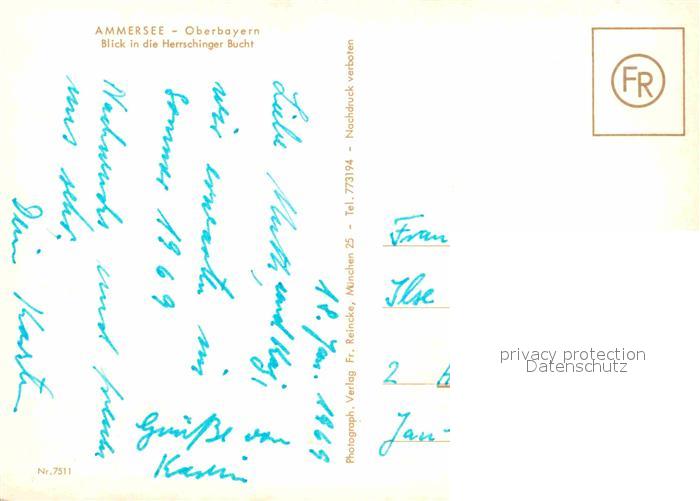 AMMERSEE – Oberbayern
Blick in die Herrschinger Bucht
18. Jan. 1969
Liebe Mutti, und Kaj,
wir erwarten im
Sommer 1969
Nachwuchs und freuen
uns sehr.
Dein
Grüße von
Photograph. Verlag Fr. Reincke, München 25 – Tel. 773194 – Nachdruck verboten
FR
Frau
Ilse
2
Jan-
privacy protection
Datenschutz
Nr. 7511